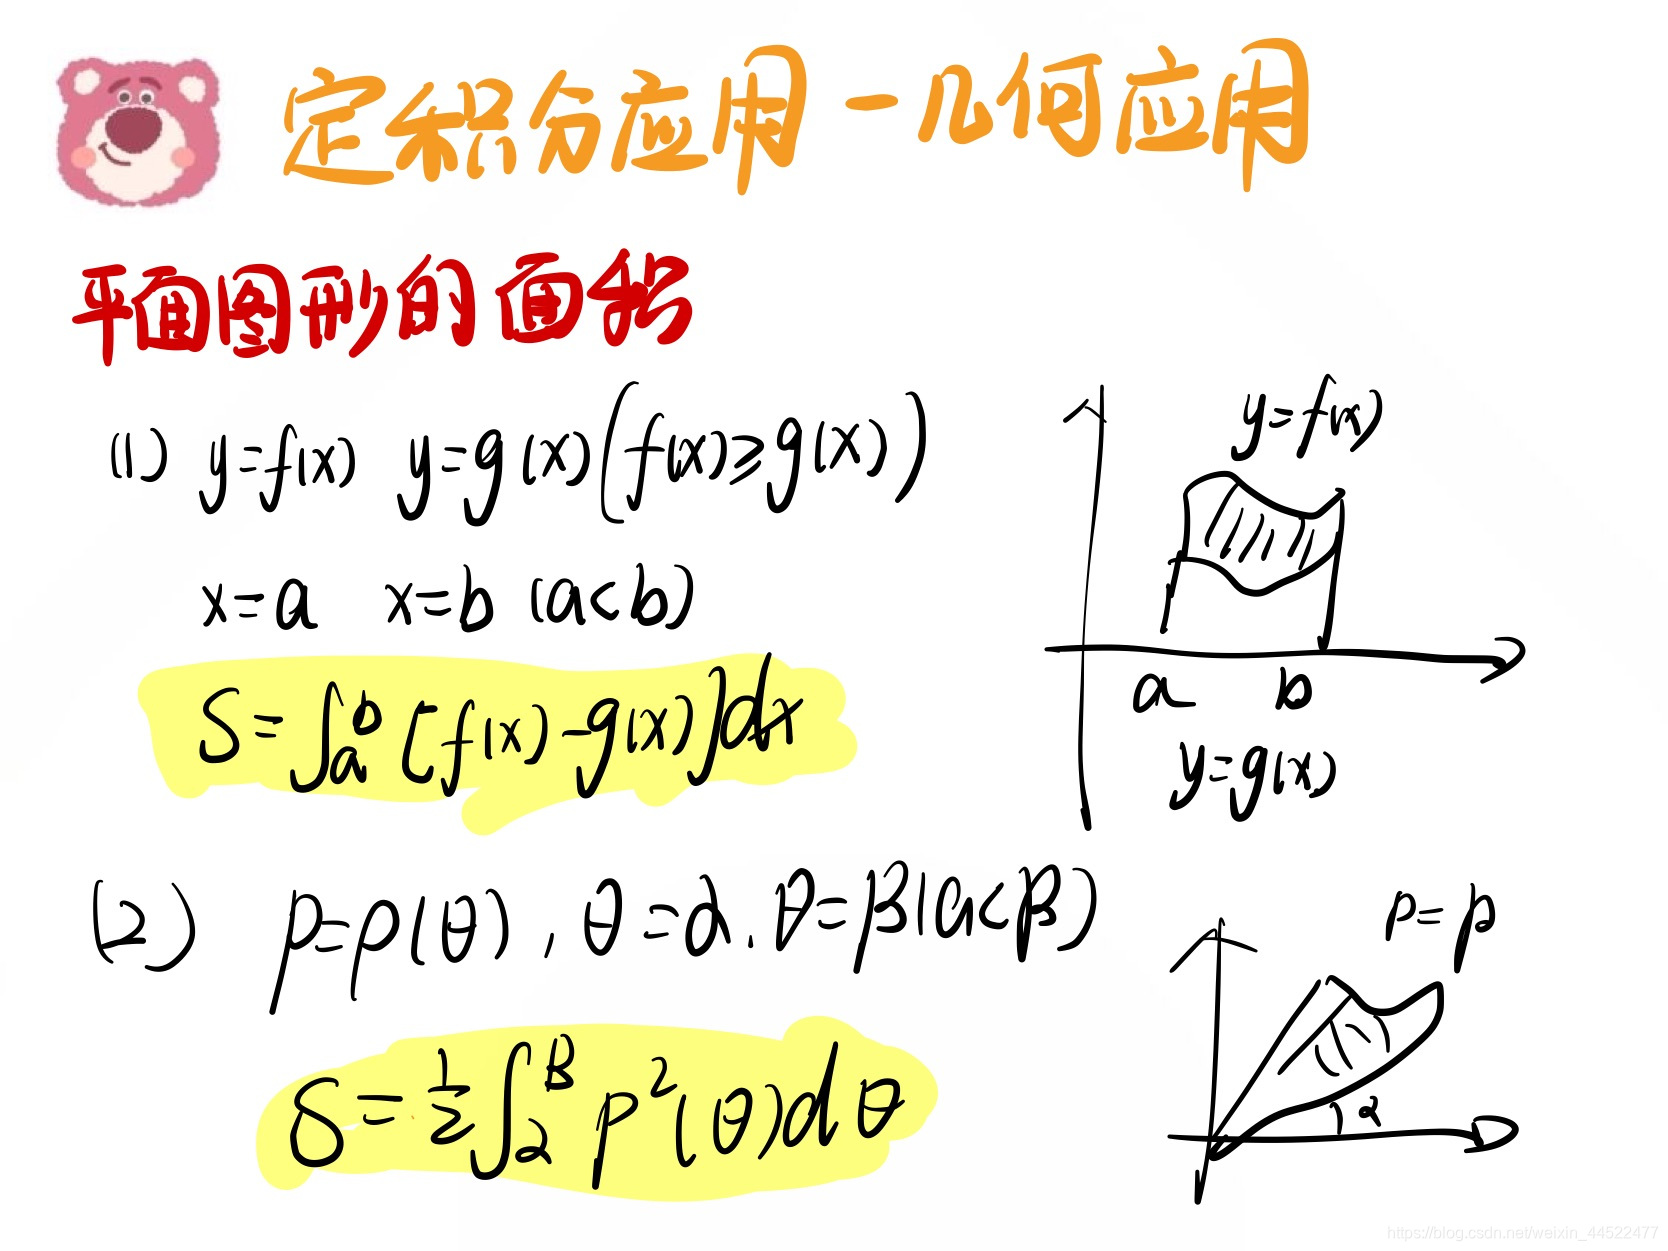 定积分应用-几何应用
平面图形的面积
(1) y=f(x) y=g(x)(f(x)≥g(x))
x=a x=b (a<b)
S=∫ₐᵇ[f(x)-g(x)]dx
y=f(x)
a b
y=g(x)
(2) ρ=ρ(θ), θ=α. θ=β(α<β)
S=½∫_α^β ρ²(θ)dθ
ρ=ρ
α
https://blog.csdn.net/weixin_44522477